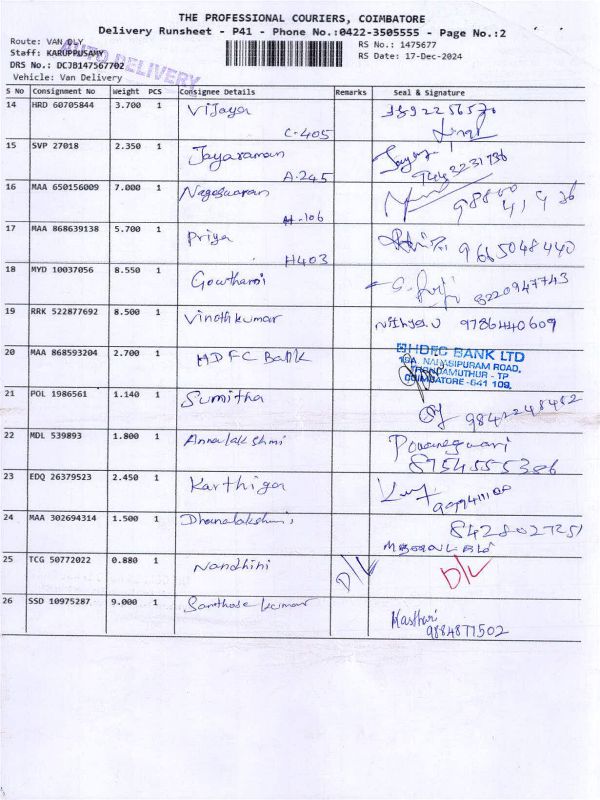 THE PROFESSIONAL COURIERS, COIMBATORE
Delivery Runsheet - P41 - Phone No.:0422-3505555 - Page No.:2
Route: VAN DLY
RS No.: 1475677
Staff: KARUPPUSAMY
RS Date: 17-Dec-2024
DRS No.: DCJB147567702
AUTO DELIVERY
Vehicle: Van Delivery
S No Consignment No Weight PCS Consignee Details Remarks Seal & Signature
14 HRD 60705844 3.700 1 Vijaya
C-405
15 SVP 27018 2.350 1 Jayaraman
A.245 9443231736
16 MAA 650156009 7.000 1 Nageswaran
H-106
17 MAA 868639138 5.700 1 Priya 9665048440
H403
18 MYD 10037056 8.550 1 Gowthami 8220947743
19 RRK 522877692 8.500 1 Vinothkumar Nithya.U 9786440609
20 MAA 868593204 2.700 1 HDFC Bank
HDFC BANK LTD
COIMBATORE-641 109.
21 POL 1986561 1.140 1 Sumitha
22 MDL 539893 1.800 1 Annalakshmi
8754555386
23 EDQ 26379523 2.450 1 Karthiga
24 MAA 302694314 1.500 1 Dhanalakshmi 8428027251
25 TCG 50772022 0.880 1 Nandhini D/L D/L
26 SSD 10975287 9.000 1 Santhosh kumar Kasthuri
9884877502